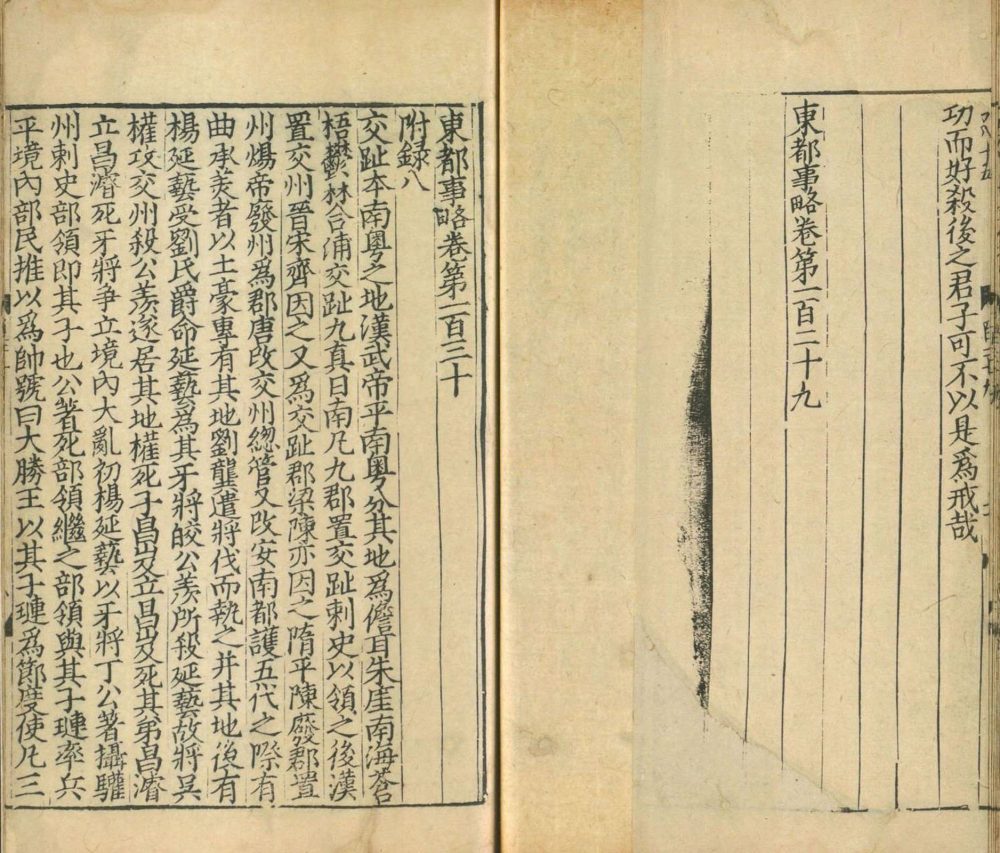 功而好殺後之君子可不以是爲戒哉
東都事略卷第一百二十九
東都事略卷第一百三十
附録八
交趾本南粤之地漢武帝平南粤分其地爲儋耳朱崖南海蒼
梧鬱林合浦交趾九真日南凡九郡置交趾刺史以領之後漢
置交州晉宋齊因之又爲交趾郡梁陳亦因之隋平陳廢郡置
州煬帝廢州爲郡唐改交州總管又改安南都護五代之際有
曲承美者以土豪專有其地劉龑遣將伐而執之并其地後有
楊延藝受劉氏爵命延藝爲其牙將皎公羨所殺延藝故將吴
權攻交州殺公羨遂居其地權死子昌岌立昌岌死其弟昌濬
立昌濬死牙將争立境内大亂初楊延藝以牙將丁公著攝驩
州刺史部領即其子也公著死部領繼之部領與其子璉率兵
平境内部民推以爲帥號曰大勝王以其子璉爲節度使凡三